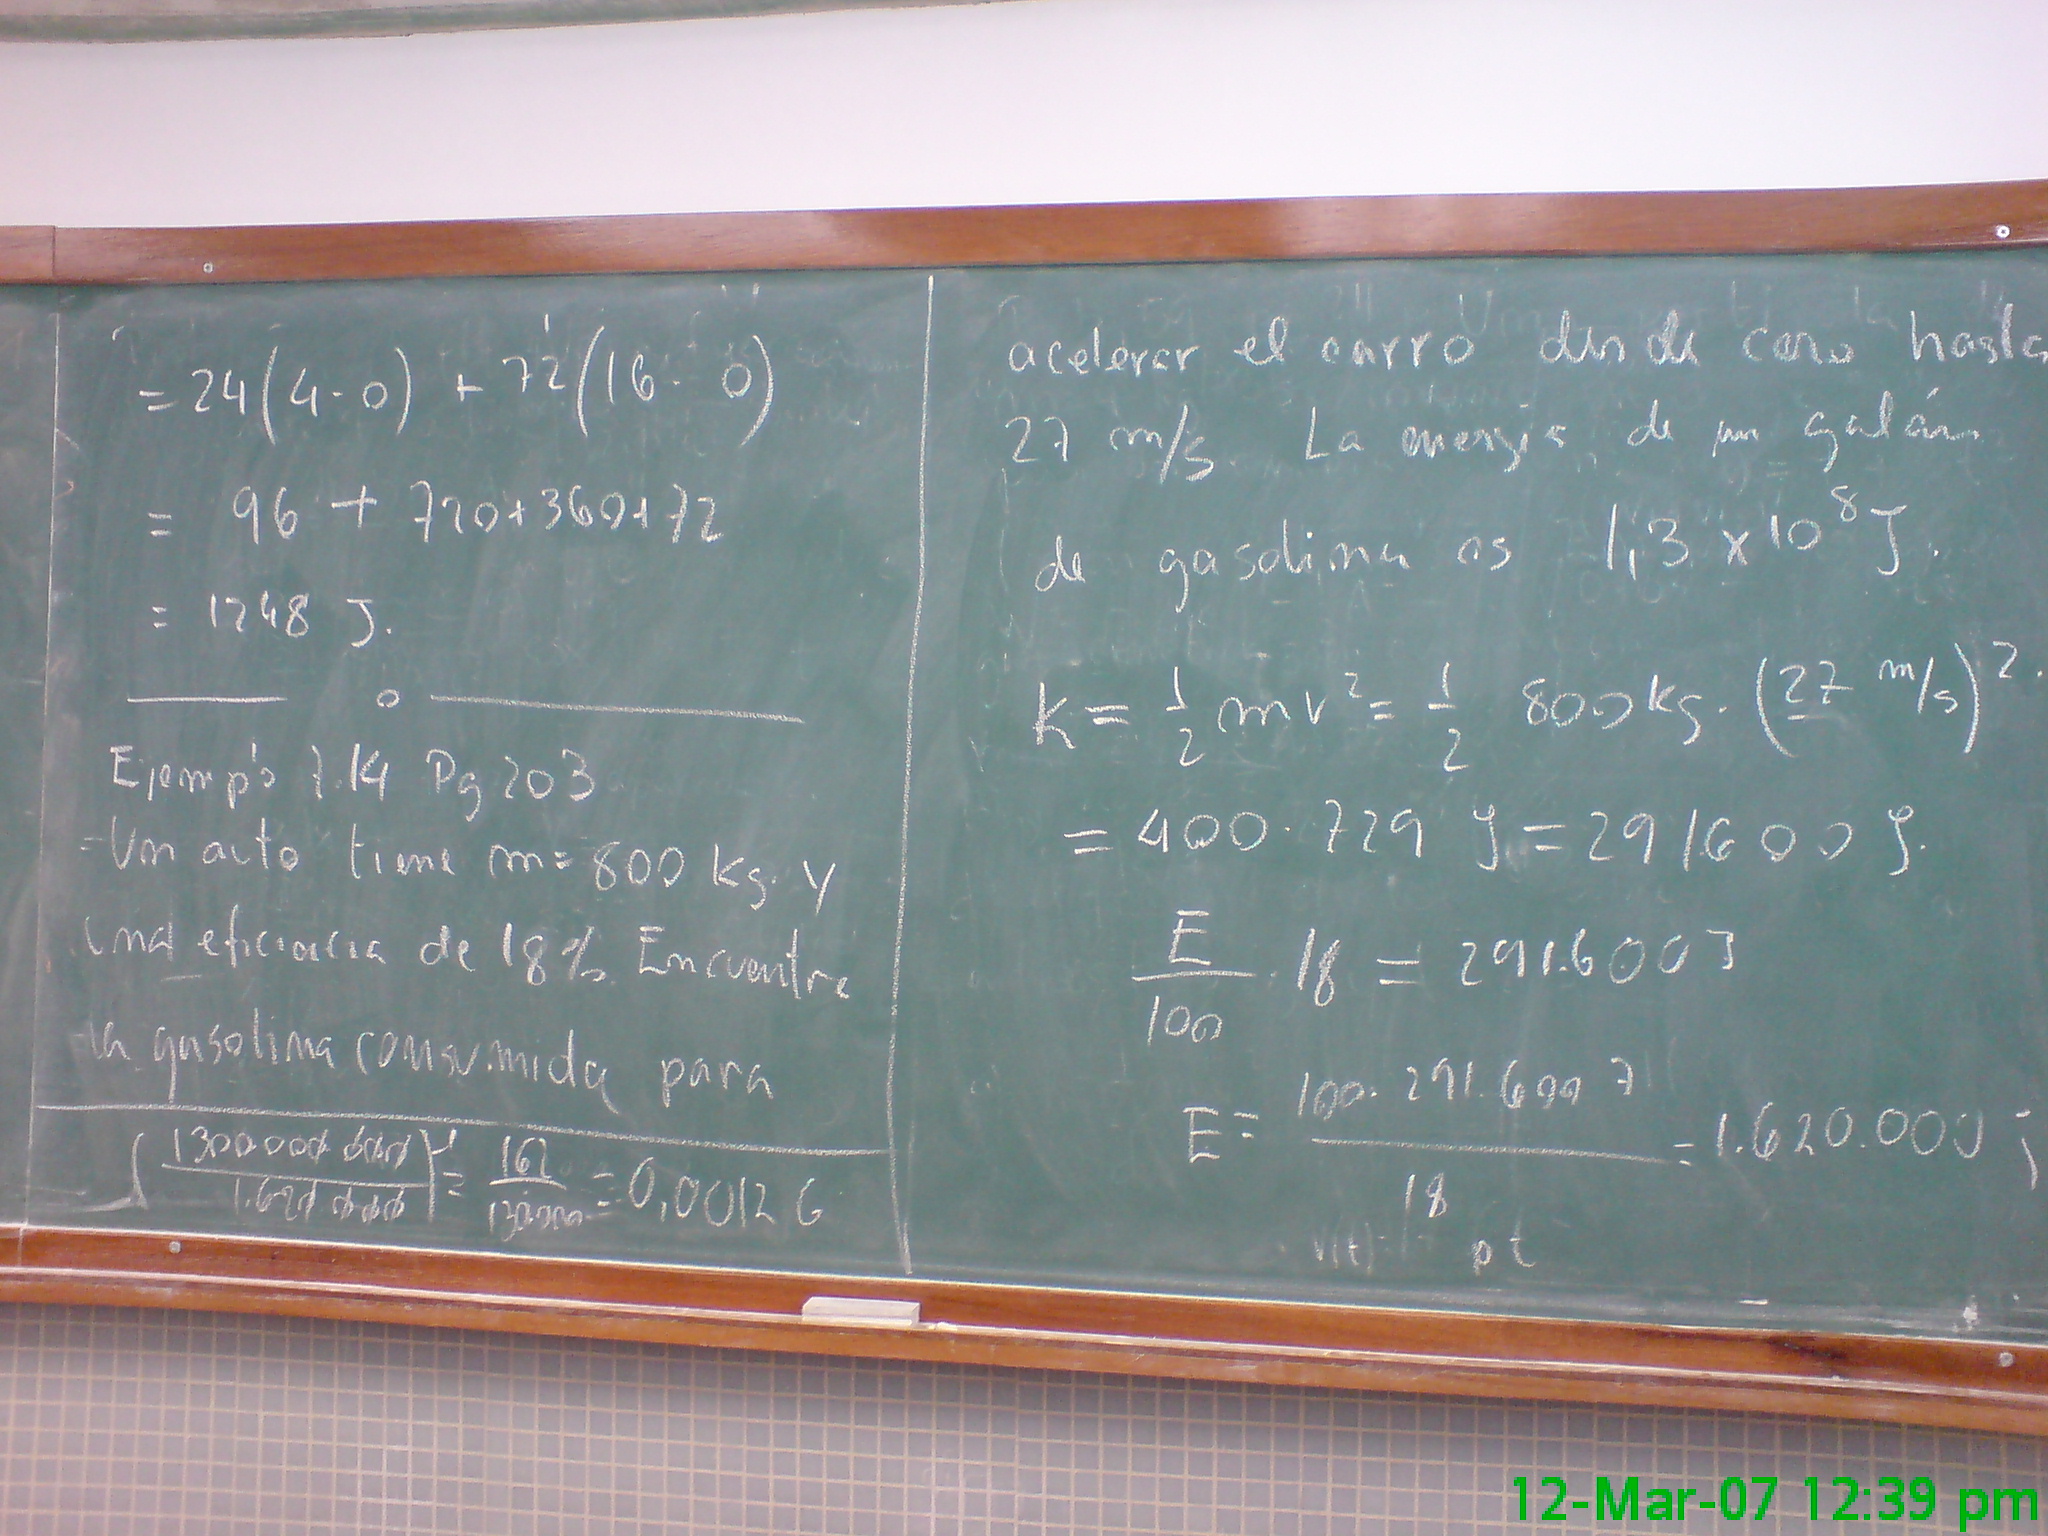 = 24(4-0) + 72(16-0)
= 96 + 720+360+72
= 1248 J.
Ejemplo 7.14 Pg 203
-Un auto tiene m= 800 kg. y
una eficiencia de 18%. Encuentre
la gasolina consumida para
(1300000000/1.620000)⁻¹ = 162/130000 = 0,00126
acelerar el carro desde cero hasta
27 m/s. La energía de un galón
de gasolina es 1,3 x 10⁸ J.
K = 1/2 mv² = 1/2 800kg. (27 m/s)².
= 400. 729 J = 291.600 J.
E/100 . 18 = 291.600 J
E = 100. 291.600 J / 18 = 1.620.000 j
v(t)
12-Mar-07 12:39 pm